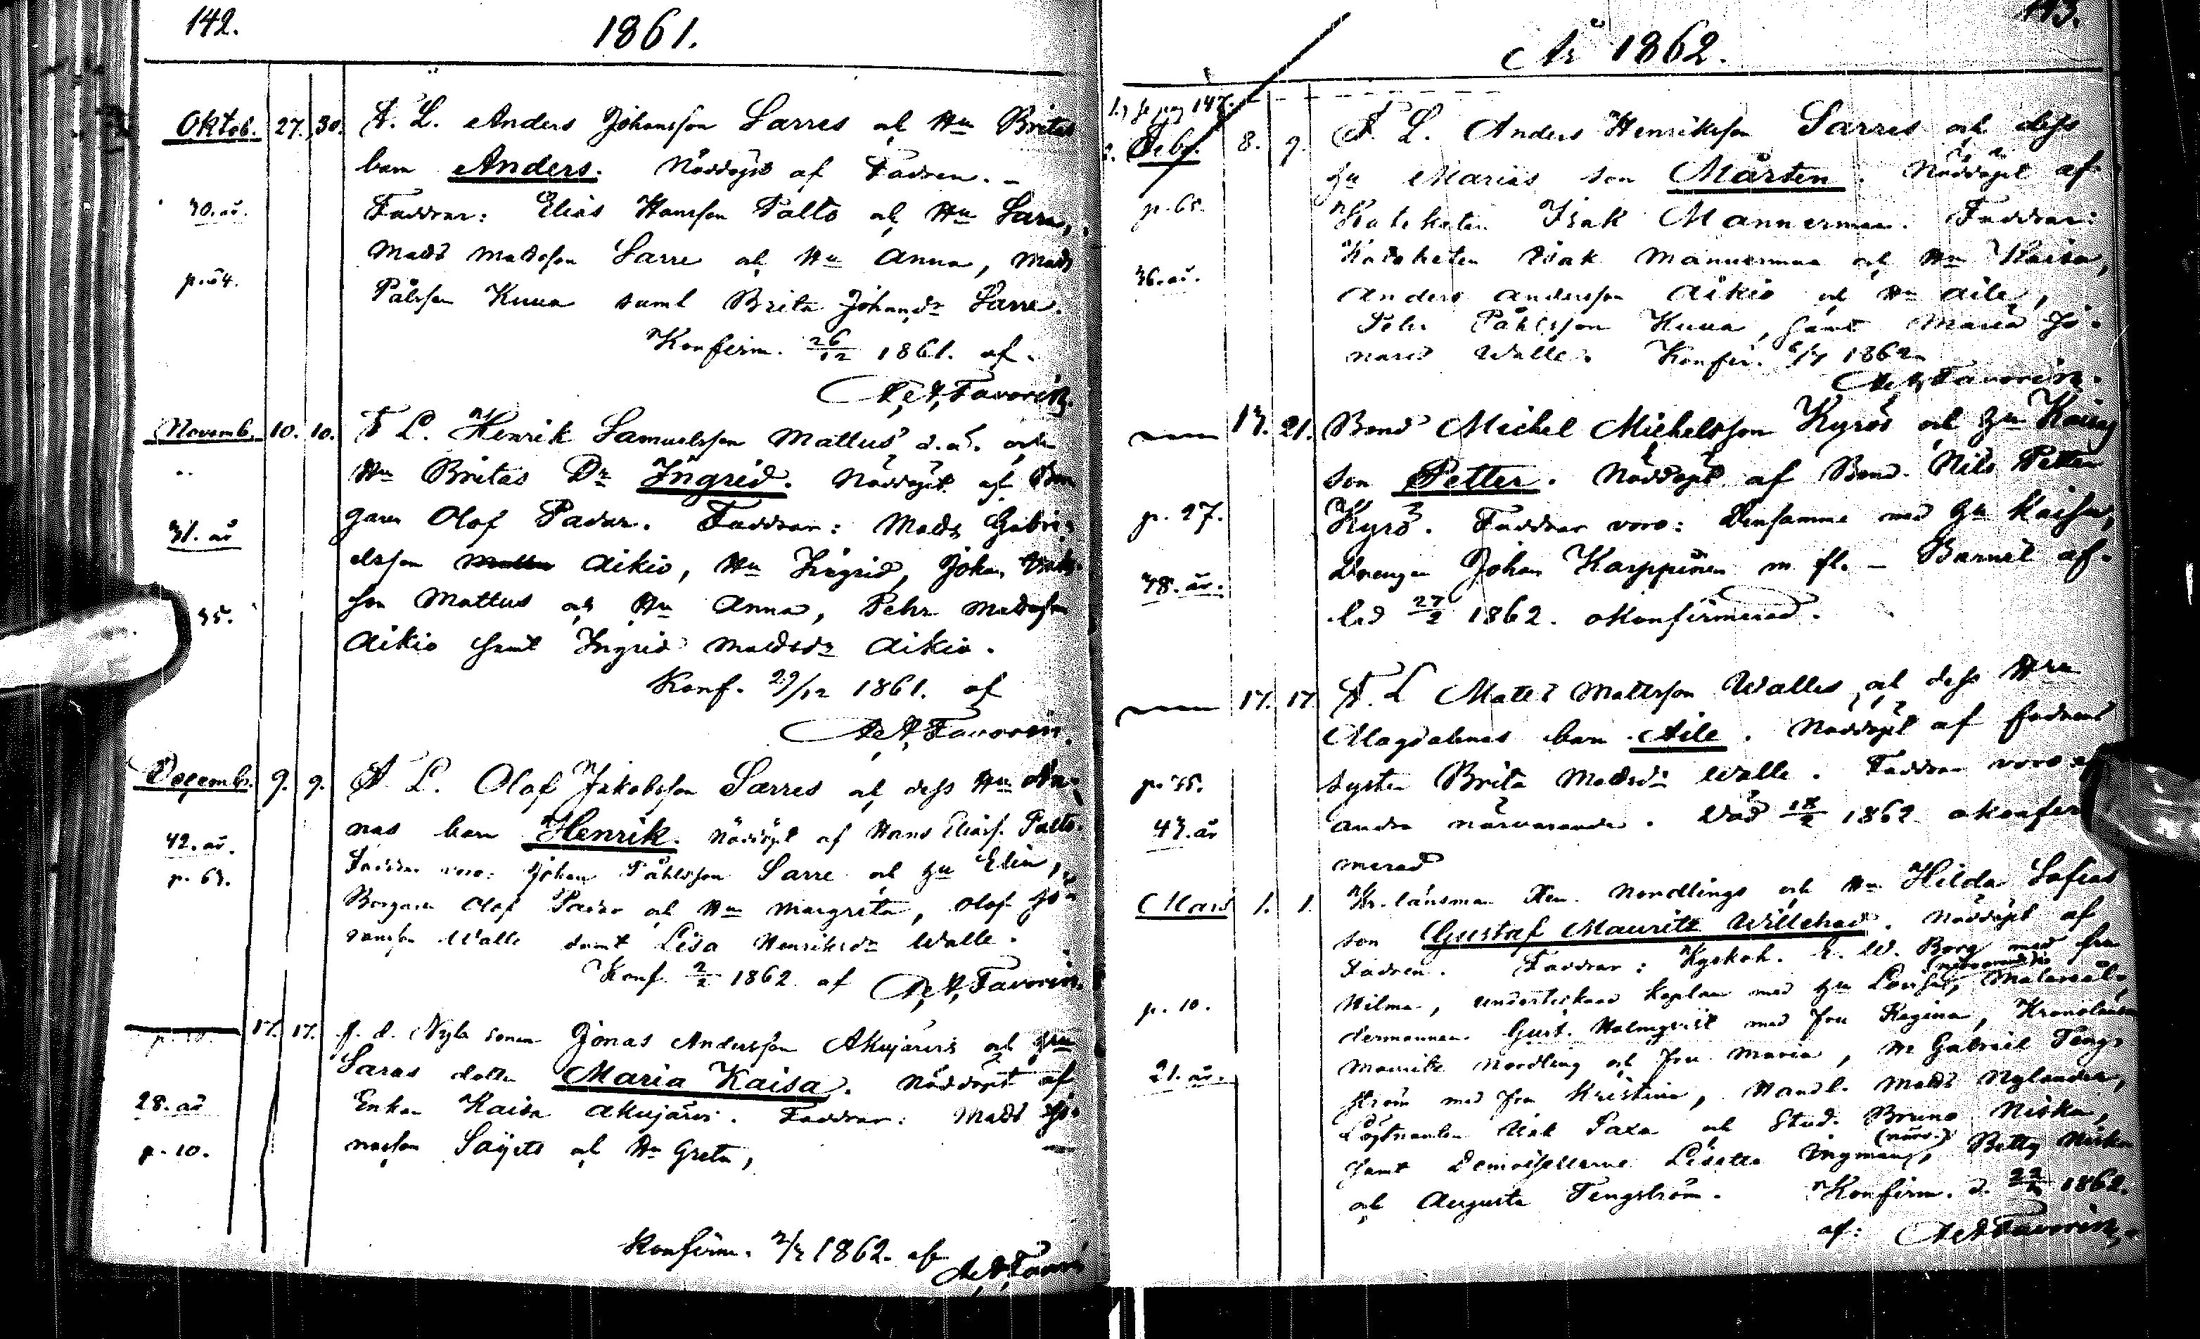 142.
1861.
Oktob. 27. 30. F. L. Anders Johansson Sarres och Hu Britas
barn Anders. Nöddöpt af Fadren. –
30. år. Faddrar: Elias Hansson Palto och Hu Sara,
Mads Madsson Sarre och Hu Anna, Mads
p. 54. Pålsson Kuua samt Brita Johansdr Sarre.
Konfirm. 26/12 1861. af.
A. A. Favorin.
Novemb. 10. 10. F L. Henrik Samuelsson Mattus d. ä. och
Hu Britas Dr Ingrid. Nöddöpt af Bor
garen Olof Padar. Faddrar: Mads Gabri-
31. år elsson Aikio, Hu Ingrid, Johan
son Mattus och Hu Anna, Pehr Madsson
35. Aikio samt Ingrid Madsdr Aikio.
Konf. 29/12 1861. af
A. A. Favorin.
Decemb. 9. 9. F L. Olof Jakobsson Sarres och dess Hu An-
nas barn Henrik. Nöddöpt af Hans Eliass. Palto.
42. år. Faddrar voro: Johan Påhlsson Sarre och Hu Elin,
p. 63. Borgaren Olof Padar och Hu Margreta, Olof Jo-
nasson Walle samt Lisa Henriksdr Walle.
Konf. 2/2 1862 af A. A. Favorin.
17. 17. f. d. Nyb. sonen Jonas Andersson Akujärvis och Hu
Saras dotter Maria Kaisa. Nöddöpt af
28. år Enkan Kaisa Akujärvi. Faddrar: Mads Jo-
p. 10. nasson Sajets och Hu Greta,
Konfirm. 2/2 1862. af
A. A. Favorin
143.
År 1862.
pag 147.
Febr. 8. 9. F L. Anders Henriksson Sarres och dess
Hu Marias son Mårten. Nöddöpt af
p. 65. Kateketen Isak Mannermaa. Faddrar:
Kateketen Isak Mannermaa och Hu Kaisa,
36. år. Anders Andersson Aikio och Hu Aile,
Pehr Påhlsson Kuua, samt Maria Jo-
nasd. Walle. Konfir. 1862
A. A. Favorin.
13. 21. Bond. Michel Michelsson Kyrös och Hu Kaisas
son Petter. Nöddöpt af Bond. Nils Petter
p. 27. Kyrö. Faddrar voro: Densamme med Hu Kaisa,
38. år. Drengen Johan Karppinen m. fl. – Barnet af-
led 27/2 1862. okonfirmerad.
17. 17. F. L Mats Mattsson Walles och dess Hu
Magdalenas barn Aile. Nöddöpt af fadrens
p. 35. syster Brita Madsdr Walle. Faddrar voro
43. år andra närvarande. Död 18/2 1862 okonfir-
merad
Mars 1. 1. Kr. länsman Hen. Nordlings och Hu Hilda Sofias
son Gustaf Mauritz Willehad. Nöddöpt af
Fadren. Faddrar: Kyrkoh. E. W. Borg med fru
Wilma, undertecknad kaplan med Hu Lovisa,
p. 10. Gust. Holmqvist med fru Regina, Kronolänsm
Mauritz Nordling och fru Maria, Gabriel Teng-
21. år. ström med fru Kristina, Handl. Mads Nylander,
Löjtnanten Isak Paxa och Stud. Bruno Niska,
samt Demoisellerne Lisette Ingman (närv.), Betty Niska
och Augusta Tengström. Konfirm. d. 1862.
af: A. A. Favorin.